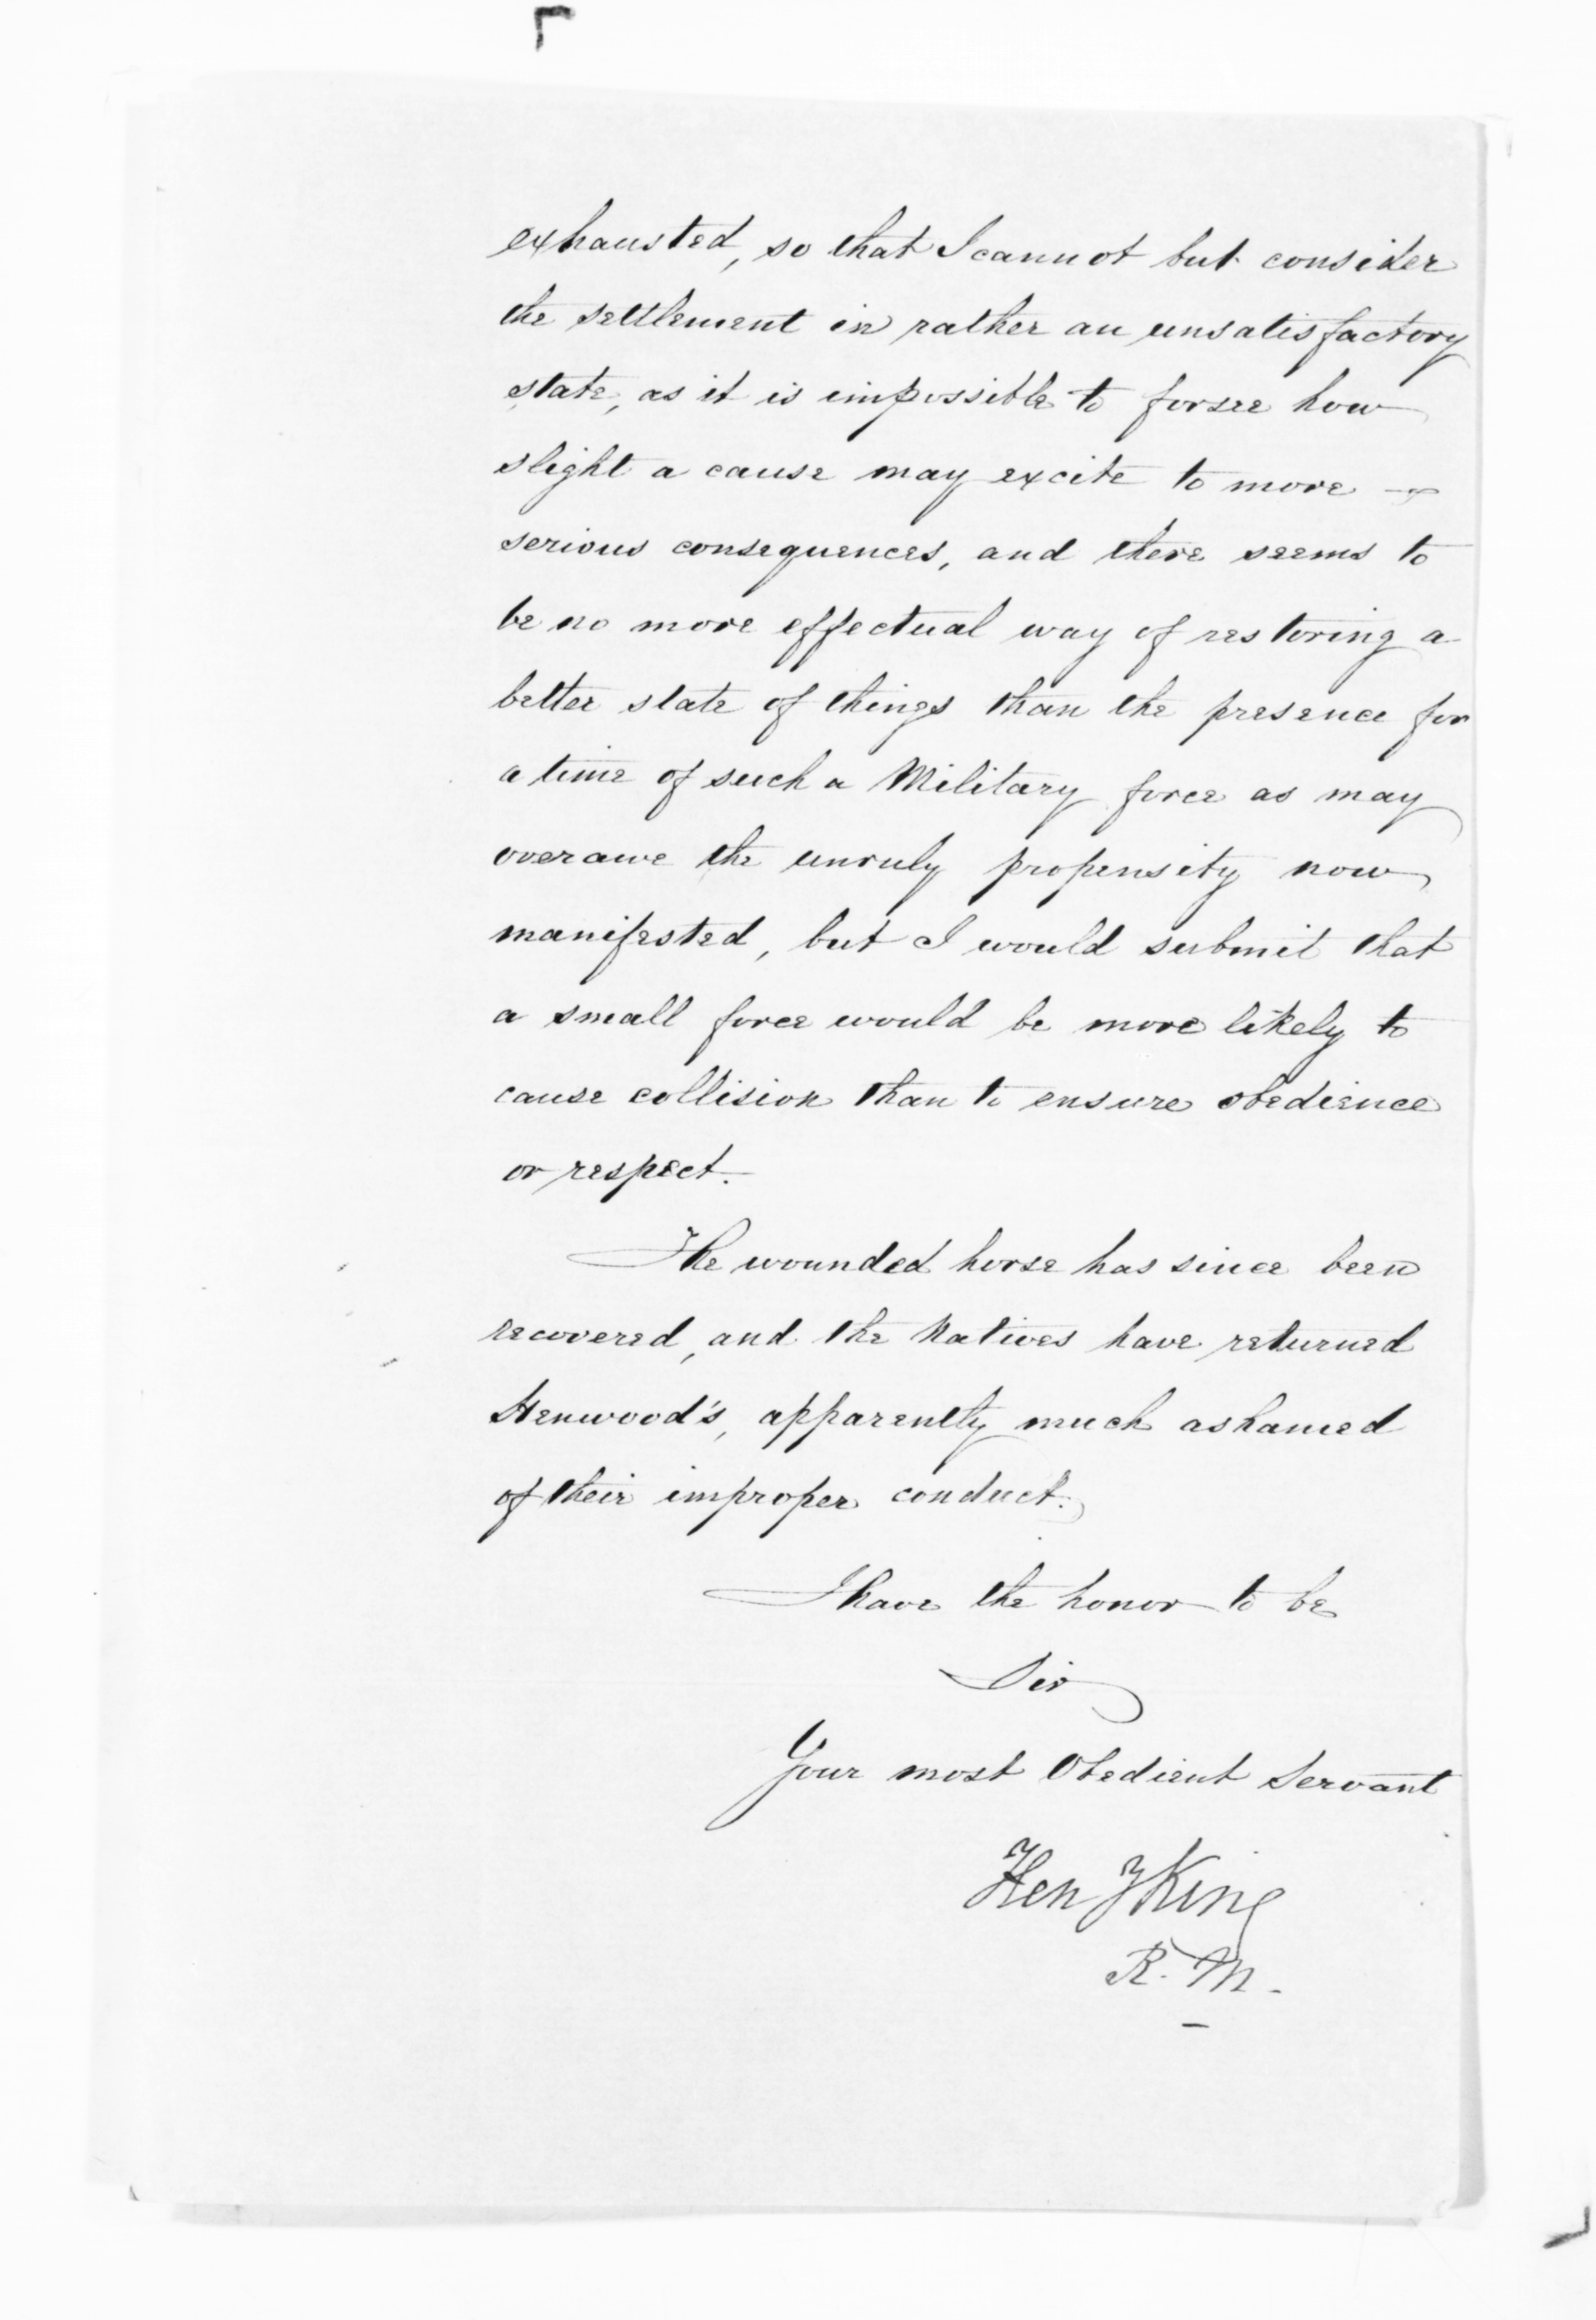 exhausted, so that I cannot but consider
the settlement in rather an unsatisfactory
state, as it is impossible to forsee how
slight a cause may excite to more
serious consequences, and there seems to
be no more effectual way of restoring a
better state of things than the presence for
a time of such a Military force as may
overawe the unruly propensity now
manifested, but I would submit that
a small force would be more likely to
cause collision than to ensure obedience
or respect.
The wounded horse has since been
recovered, and the Natives have returned
Henwood's, apparently much ashamed
of their improper conduct.
I have the honor to be
Sir
Your most Obedient Servant
Hen y King
R. M.